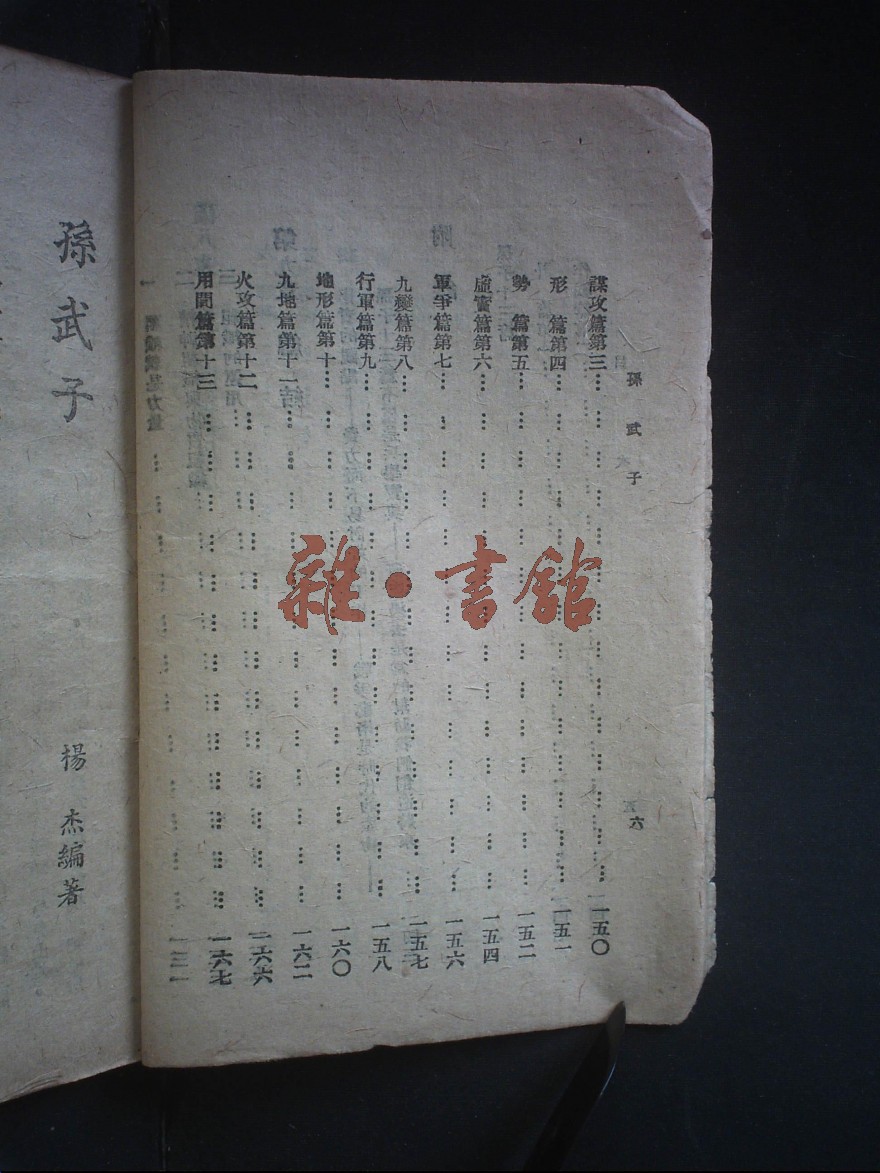 孫武子
六
謀攻篇第三……一五〇
形　篇第四……一五一
勢　篇第五……一五二
虛實篇第六……一五四
軍爭篇第七……一五六
九變篇第八……一五七
行軍篇第九……一五八
地形篇第十……一六〇
九地篇第十一……一六二
火攻篇第十二……一六六
用間篇第十三……一六七
孫武子
楊杰編著
雜·書館